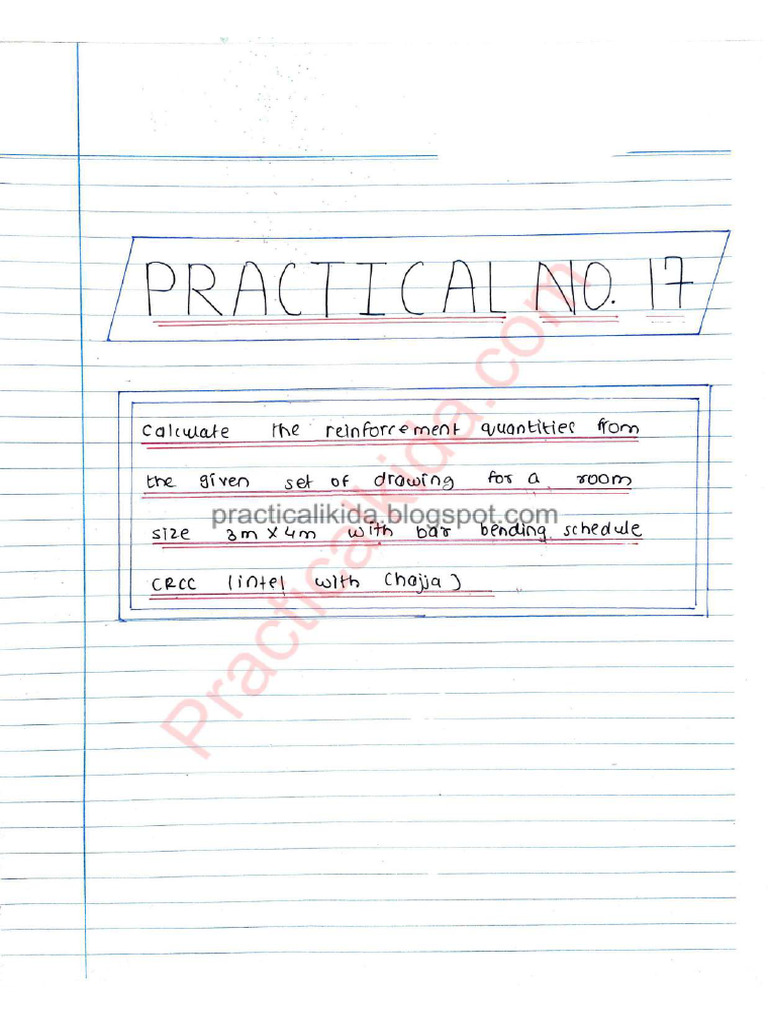 PRACTICAL NO. 17
Calculate the reinforcement quantities from
the given set of drawing for a room
practicalikida.blogspot.com
size 3m x 4m with bar bending schedule
CRCC lintel with Chajja)
Practicalkida.com